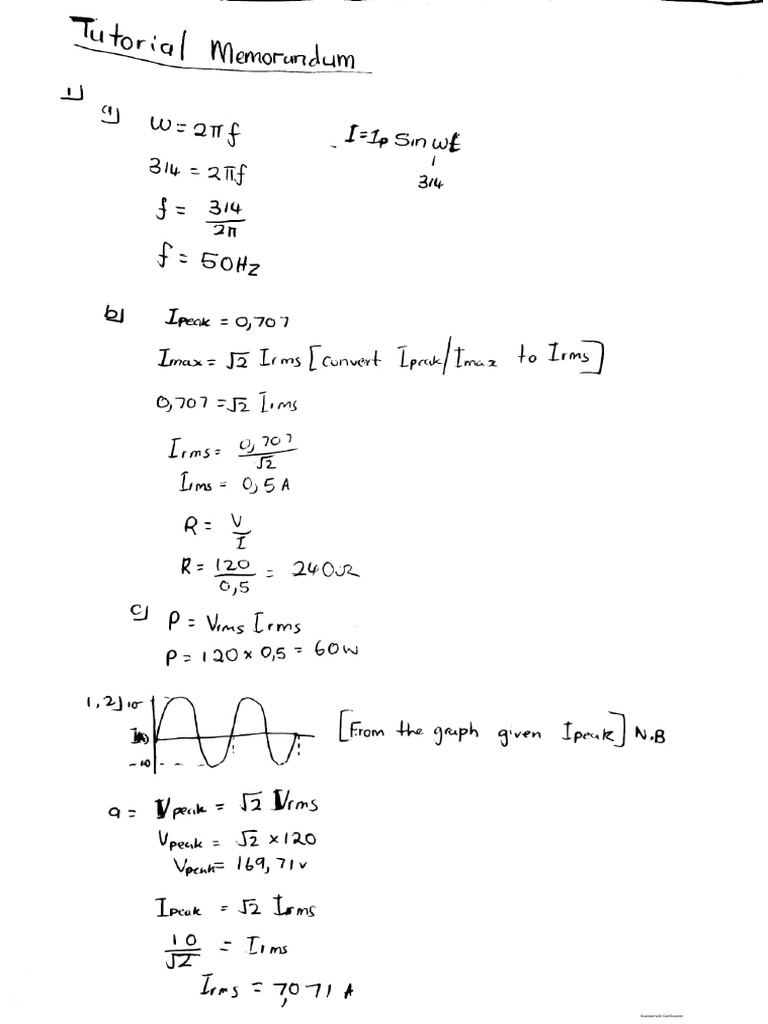 Tutorial Memorandum
1)
a) W = 2πf    I = Ip Sin wt
314 = 2πf    314
f = 314/2π
f = 50Hz
b) Ipeak = 0,707
Imax = √2 Irms [convert Ipeak/Imax to Irms]
0,707 = √2 Irms
Irms = 0,707/√2
Irms = 0,5 A
R = V/I
R = 120/0,5 = 240Ω
c) P = Vrms Irms
P = 120 × 0,5 = 60W
1,2) 10
[From the graph given Ipeak] N.B
-10
a = Vpeak = √2 Vrms
Vpeak = √2 × 120
Vpeak = 169,71v
Ipeak = √2 Irms
10/√2 = Irms
Irms = 7,071 A
Scanned with CamScanner